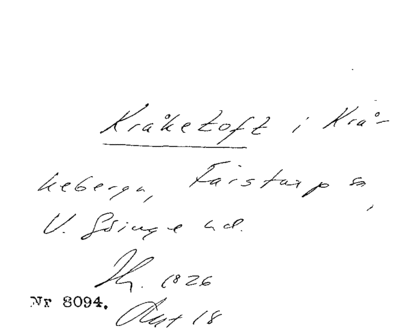 Kråketoft i Krå-
keberga, Färstorp s,
V. Göinge hd.
Th. 1826
Nr 8094.
Ant 18